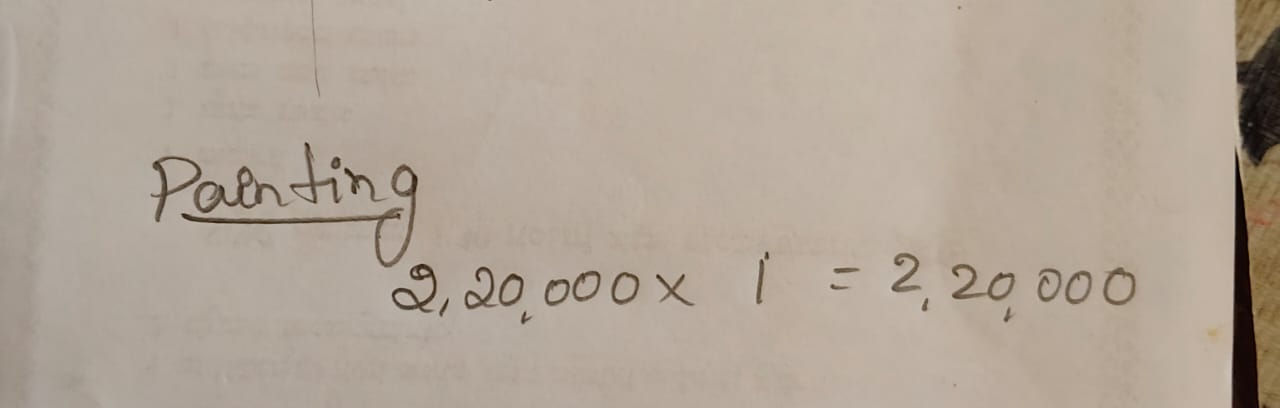 Painting
2,20,000 x 1 = 2,20,000